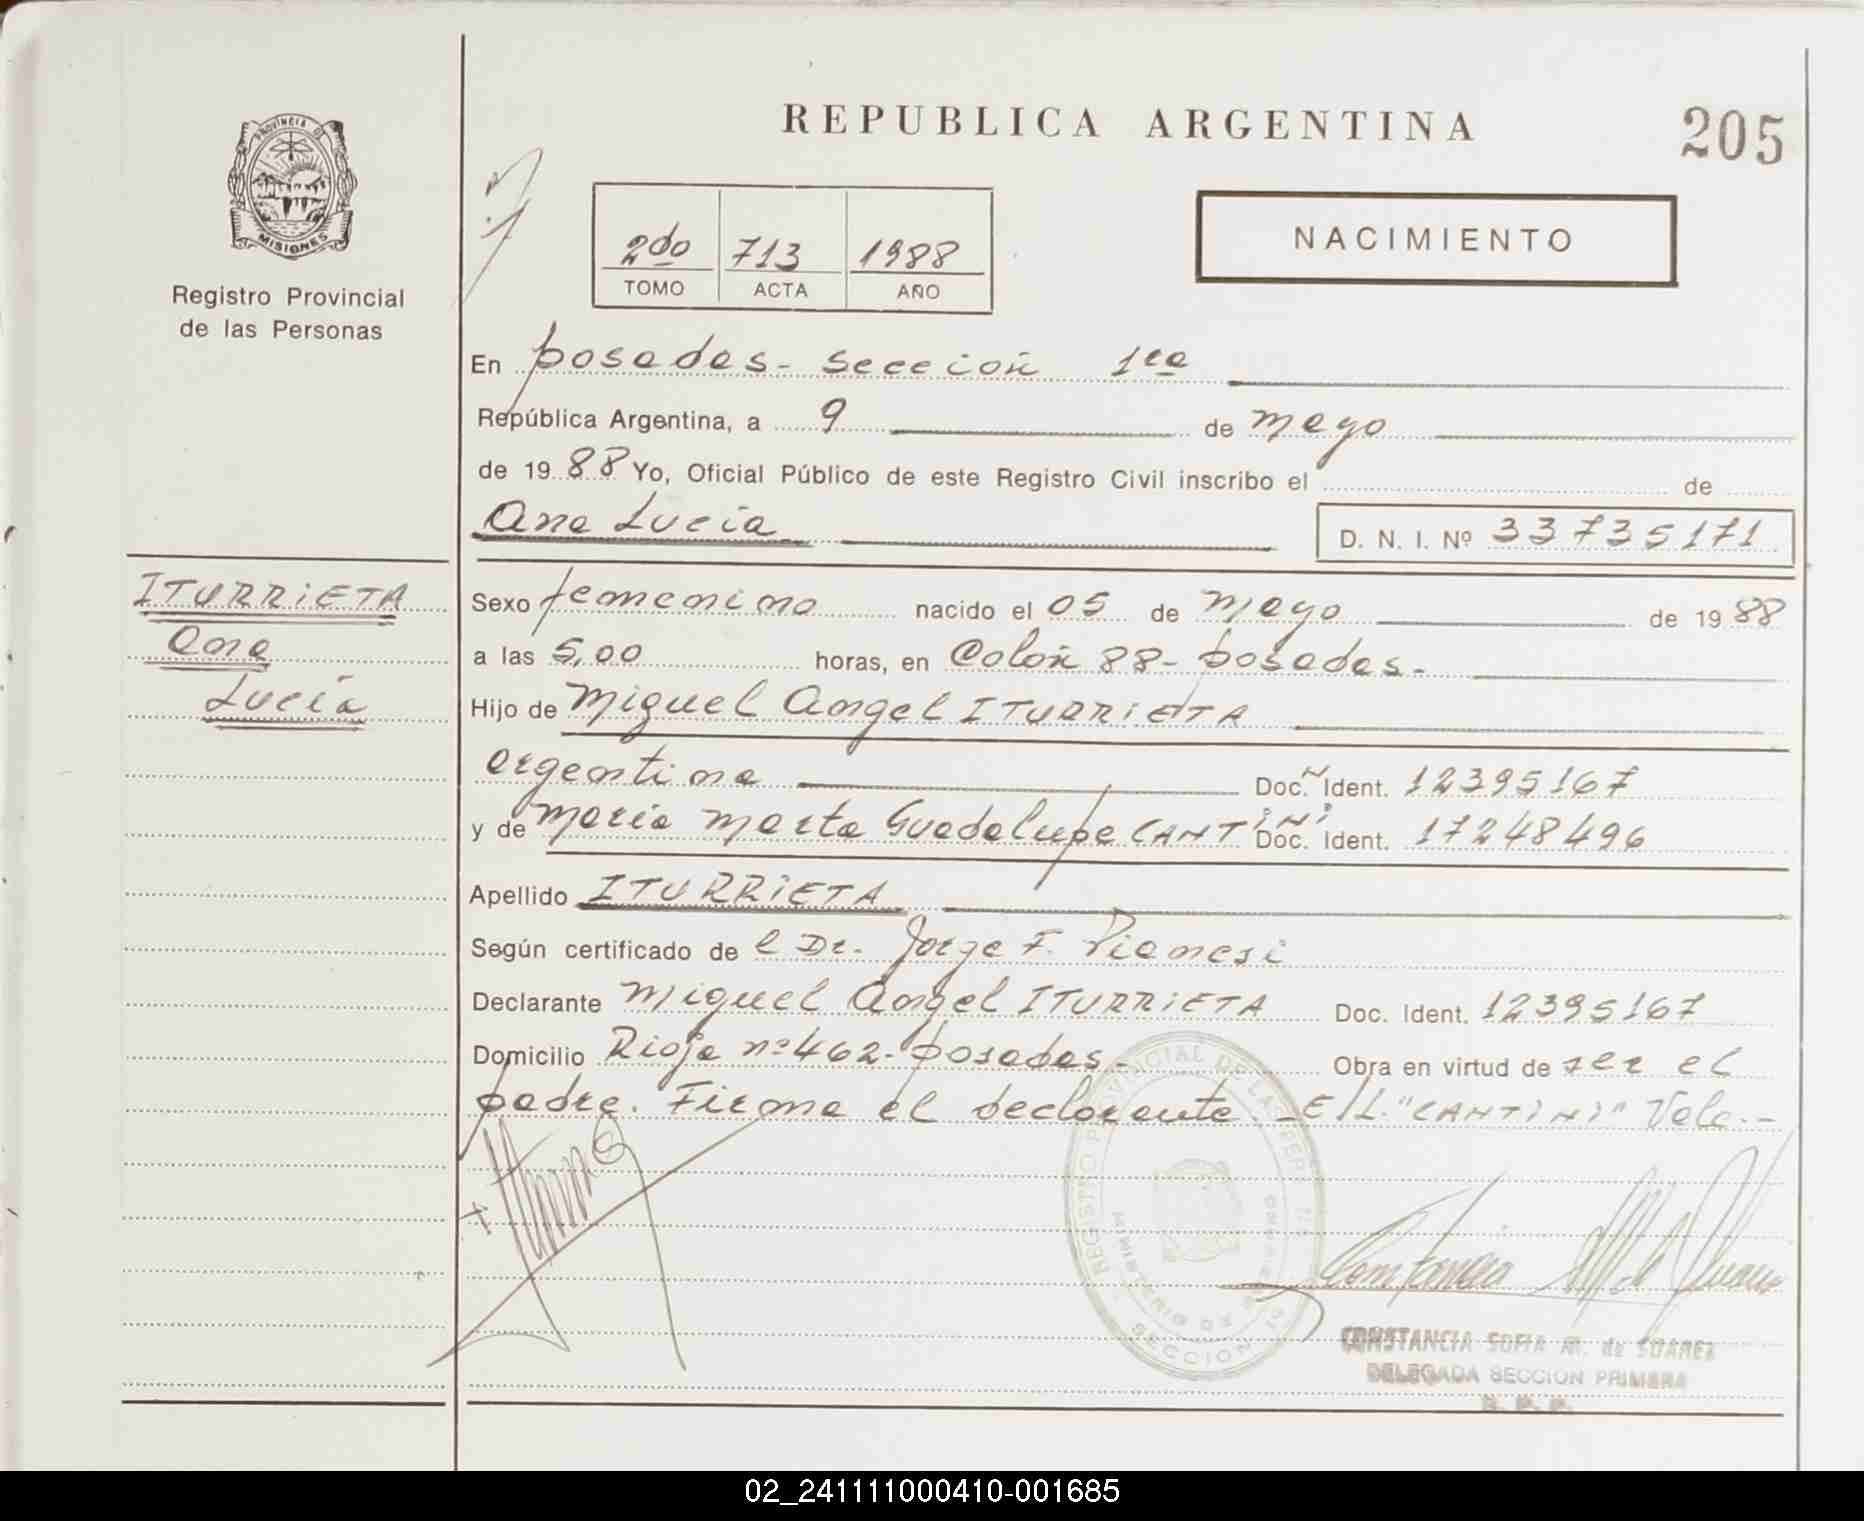 REPUBLICA ARGENTINA
205
PROVINCIA DE
MISIONES
Registro Provincial
de las Personas
2do 713 1988
TOMO ACTA AÑO
NACIMIENTO
En posadas - sección 1ra
República Argentina, a 9 de mayo
de 1988 Yo, Oficial Público de este Registro Civil inscribo el de
Ana Lucía
D. N. I. Nº 33735171
ITURRIETA
Ana
Lucía
Sexo femenino nacido el 05 de mayo de 1988
a las 5,00 horas, en Colón 88- posadas.-
Hijo de Miguel Angel ITURRIETA
argentina Doc. Ident. 12395167
y de María Marta Guadalupe CANTINI Doc. Ident. 17248496
Apellido ITURRIETA
Según certificado de l Dr. Jorge F. Pianesi
Declarante Miguel Angel ITURRIETA Doc. Ident. 12395167
Domicilio Rioja nº 462- posadas.- Obra en virtud de ser el
padre. Firma el declarante.- E/L. "CANTINI" Vale.-
REGISTRO PROVINCIAL DE LAS PERS
MINISTERIO DE GOBIERNO
SECCION 1a
CONSTANCIA SOFIA M. de SUAREZ
DELEGADA SECCION PRIMERA
R. P. P.
02_241111000410-001685